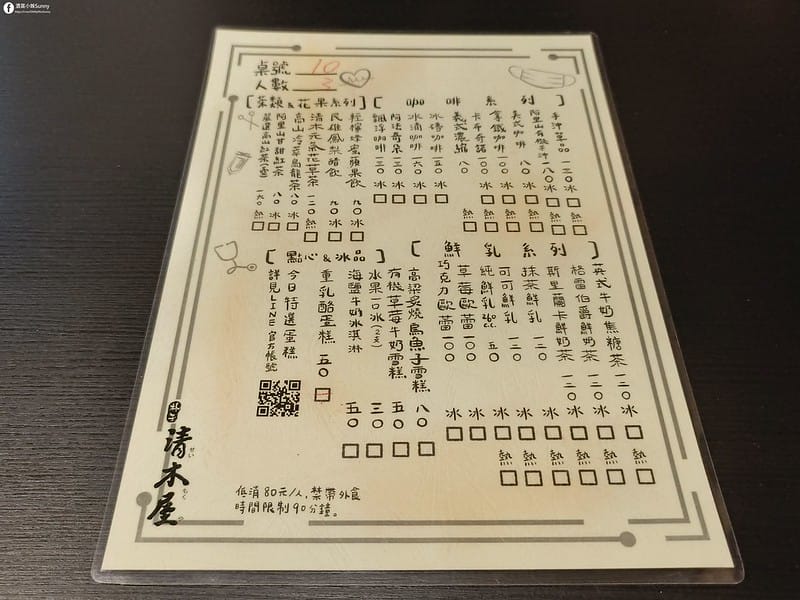 酒雄小姊Sunny
桌號 10
人數 3
[茶類&花果系列]
[咖啡系列]
手沖單品 一二〇 冰□ 熱□
阿里山有機手沖 一八〇 冰□ 熱□
美式咖啡 八〇 冰□ 熱□
拿鐵咖啡 一〇〇 冰□ 熱□
卡布奇諾 一〇〇 冰□ 熱□
義式濃縮 八〇 熱□
冰磚咖啡 一五〇 冰□
冰滴咖啡 一六〇 冰□
阿法奇朵 一三〇 冰□
飄浮咖啡 一三〇 冰□
輕檸烤蜜蘋果飲 九〇 冰□
民雄鳳梨醋飲 九〇 冰□
清木元氣花草茶 一二〇 熱□
高山冷萃烏龍茶 八〇 冰□
阿里山甘甜紅茶 八〇 冰□
嚴選高山紅茶(壺) 一六〇 熱□
[鮮乳系列]
英式牛奶焦糖茶 一二〇 冰□ 熱□
格雷伯爵鮮奶茶 一二〇 冰□ 熱□
斯里蘭卡鮮奶茶 一二〇 冰□ 熱□
抹茶鮮乳 一二〇 冰□ 熱□
可可鮮乳 一二〇 冰□ 熱□
純鮮乳260cc. 五〇 冰□ 熱□
草莓歐蕾 一〇〇 冰□
巧克力歐蕾 一〇〇 冰□
[點心&冰品]
高粱炙燒烏魚子雪糕 八〇 □
有機草莓牛奶雪糕 五〇 □
水果一口冰(2支) 三〇 □
海鹽牛奶冰淇淋 五〇 □
重乳酪蛋糕 五〇 □
今日特選蛋糕
詳見LINE官方帳號
清木屋
せい もく や
低消80元/人,禁帶外食
時間限制90分鐘。